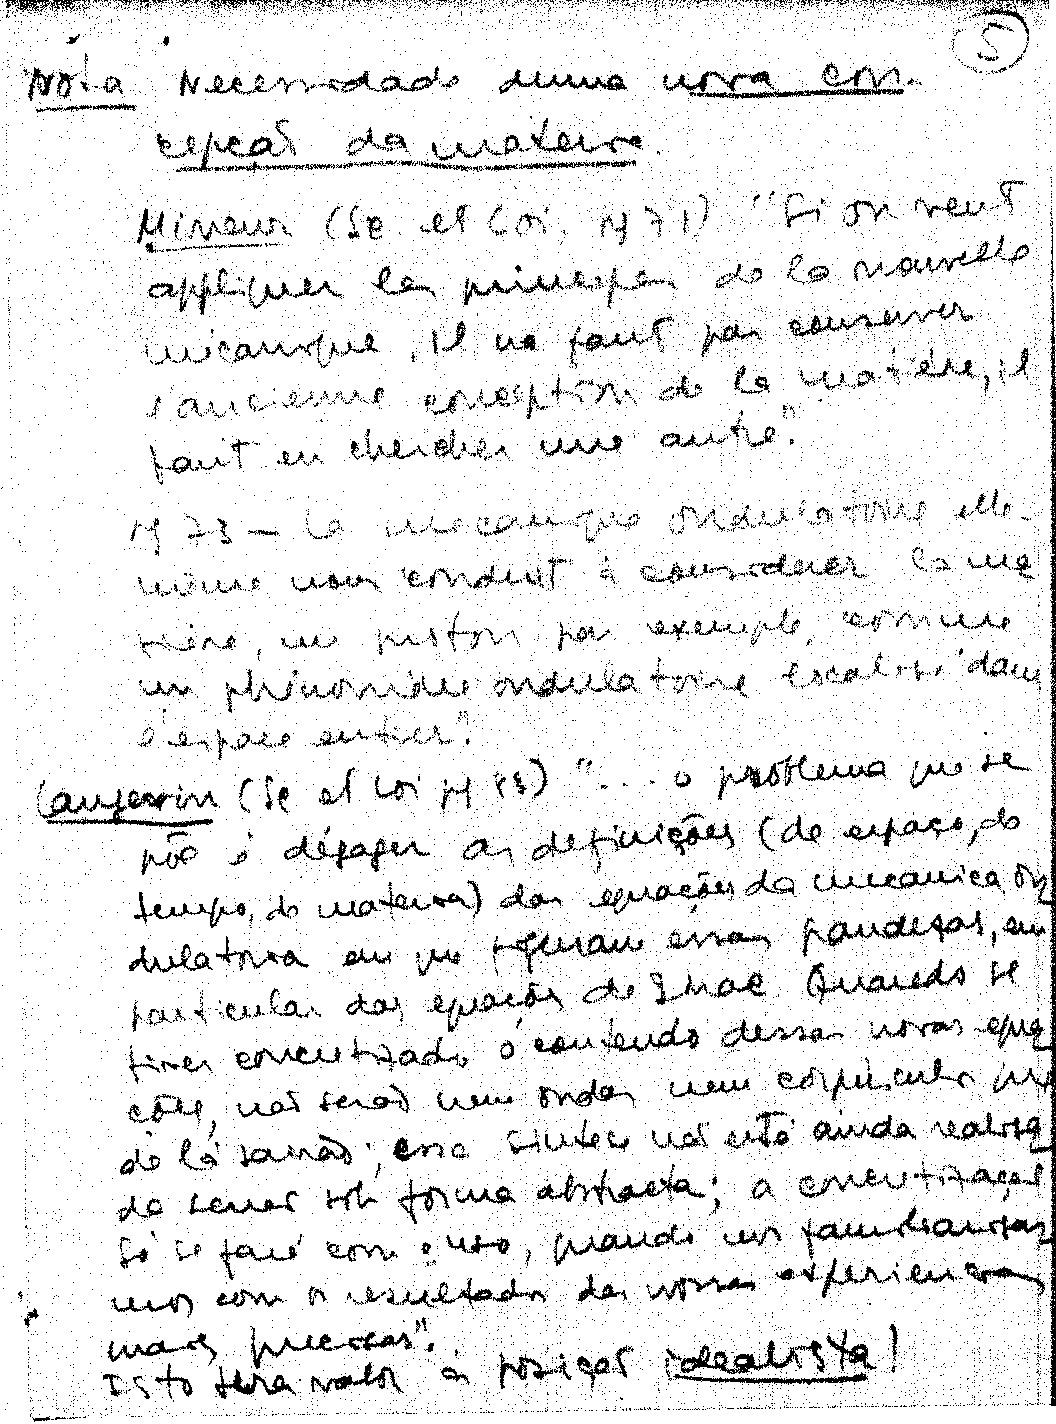 5
Nota Necessidade duma nova con-
cepção da matéria.
Mineur (Sc et Loi, pg 71) "Si on veut
appliquer les principes de la nouvelle
mécanique, il ne faut pas conserver
l'ancienne conception de la matière, il
faut en chercher une autre."
pg 73 – la mécanique ondulatoire elle-
même nous conduit à considerer la ma
tière, un piston par exemple, comme
un phénomène ondulatoire localisé dans
l'espace entier".
Langevin (Sc et Loi pg 83) "... o problema que se
põe é dégager as definições (de espaço, de
tempo, de materia) das equações da mecanica on
dulatoria em que figuram essas grandezas, em
particular das equações de Dirac. Quando se
tiver concretizado o conteudo dessas novas equa
ções, não serão nem ondas nem corpusculos que
de lá sairão; essa sintese não está ainda realisa
da senão sob forma abstracta; a concretização
só se fará com o uso, quando nos familiarisar
mos com o resultado das nossas experiencias
mais precisas".
Isto tira valor à posição idealista!